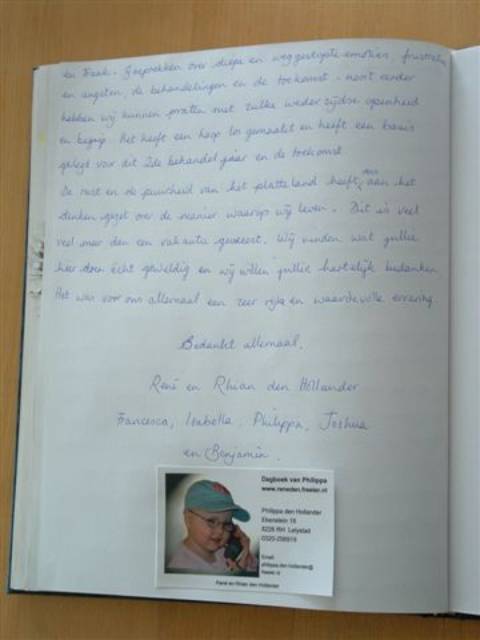 en Frank. Gesprekken over diepe en weggestopte emoties, frustraties
en angsten, de behandelingen en de toekomst - nooit eerder
hebben wij kunnen praten met zulke wederzijdse openheid
en begrip. Het heeft een hoop los gemaakt en heeft een basis
gelegd voor dit 2de behandel jaar en de toekomst.
De rust en de puurheid van het platteland heeft ons aan het
denken gezet over de manier waarop wij leven. Dit is veel
veel meer dan een vakantie geweest. Wij vinden wat jullie
hier doen echt geweldig en wij willen jullie hartelijk bedanken
Het was voor ons allemaal een zeer rijke en waardevolle ervaring
Bedankt allemaal,
René en Rhian den Hollander
Francesca, Isabella, Philippa, Joshua
en Benjamin.
Dagboek van Philippa
www.reneden.freeler.nl
Philippa den Hollander
8226 RH Lelystad
Email:
philippa.den.hollander@
freeler.nl
René en Rhian den Hollander